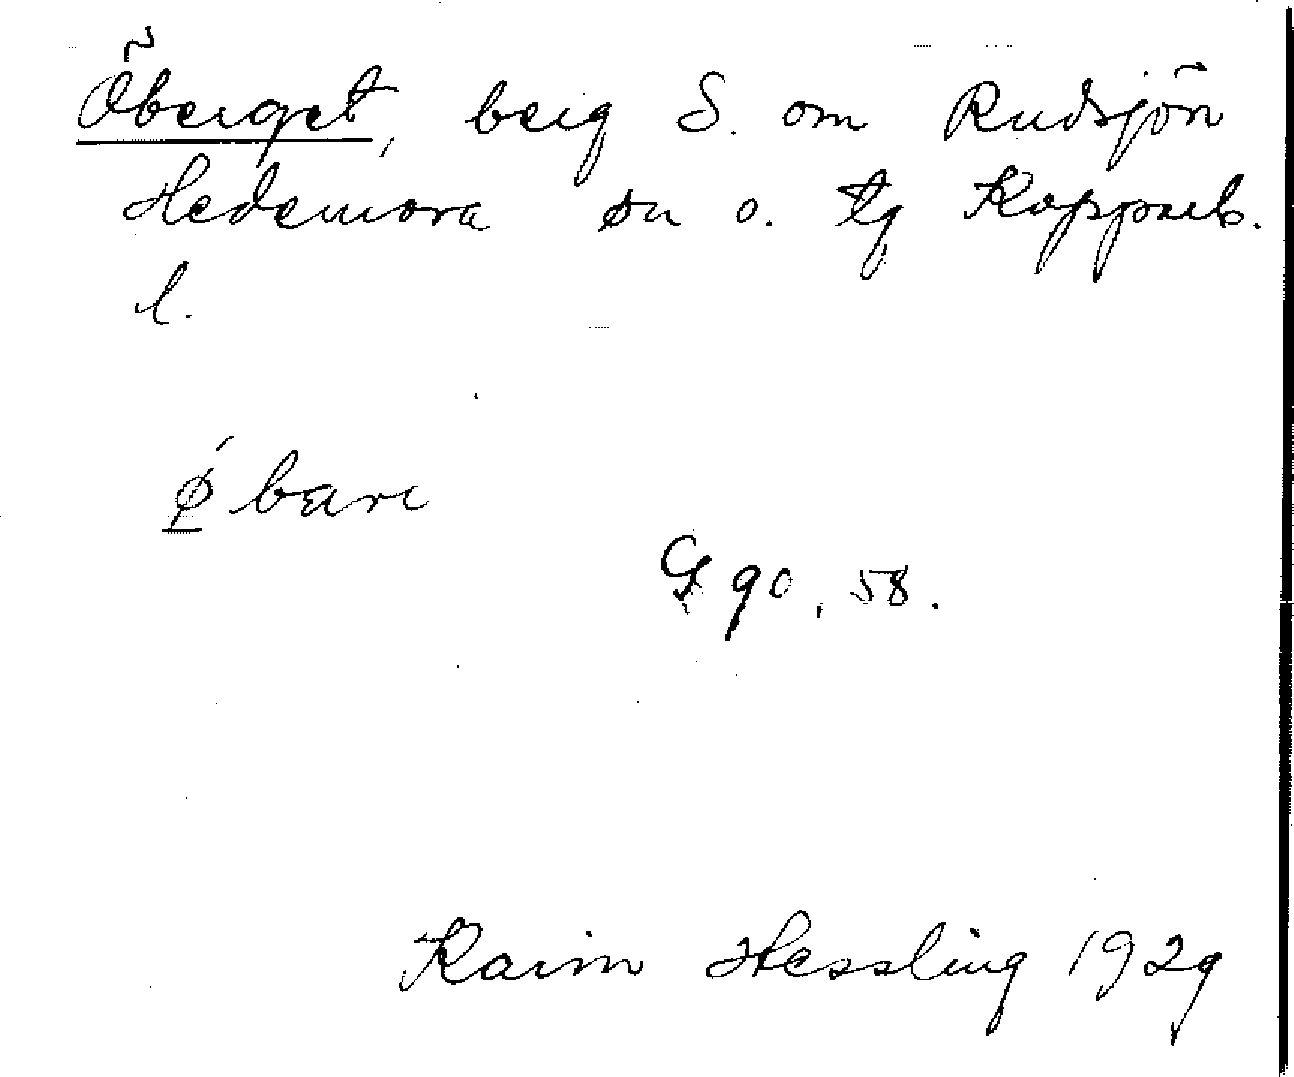 Öberget, berg S. om Rudsjön
Hedemora sn o. tg Kopparb.
l.
ǿ bærɩ
G 90, 58.
Karin Hessling 1929